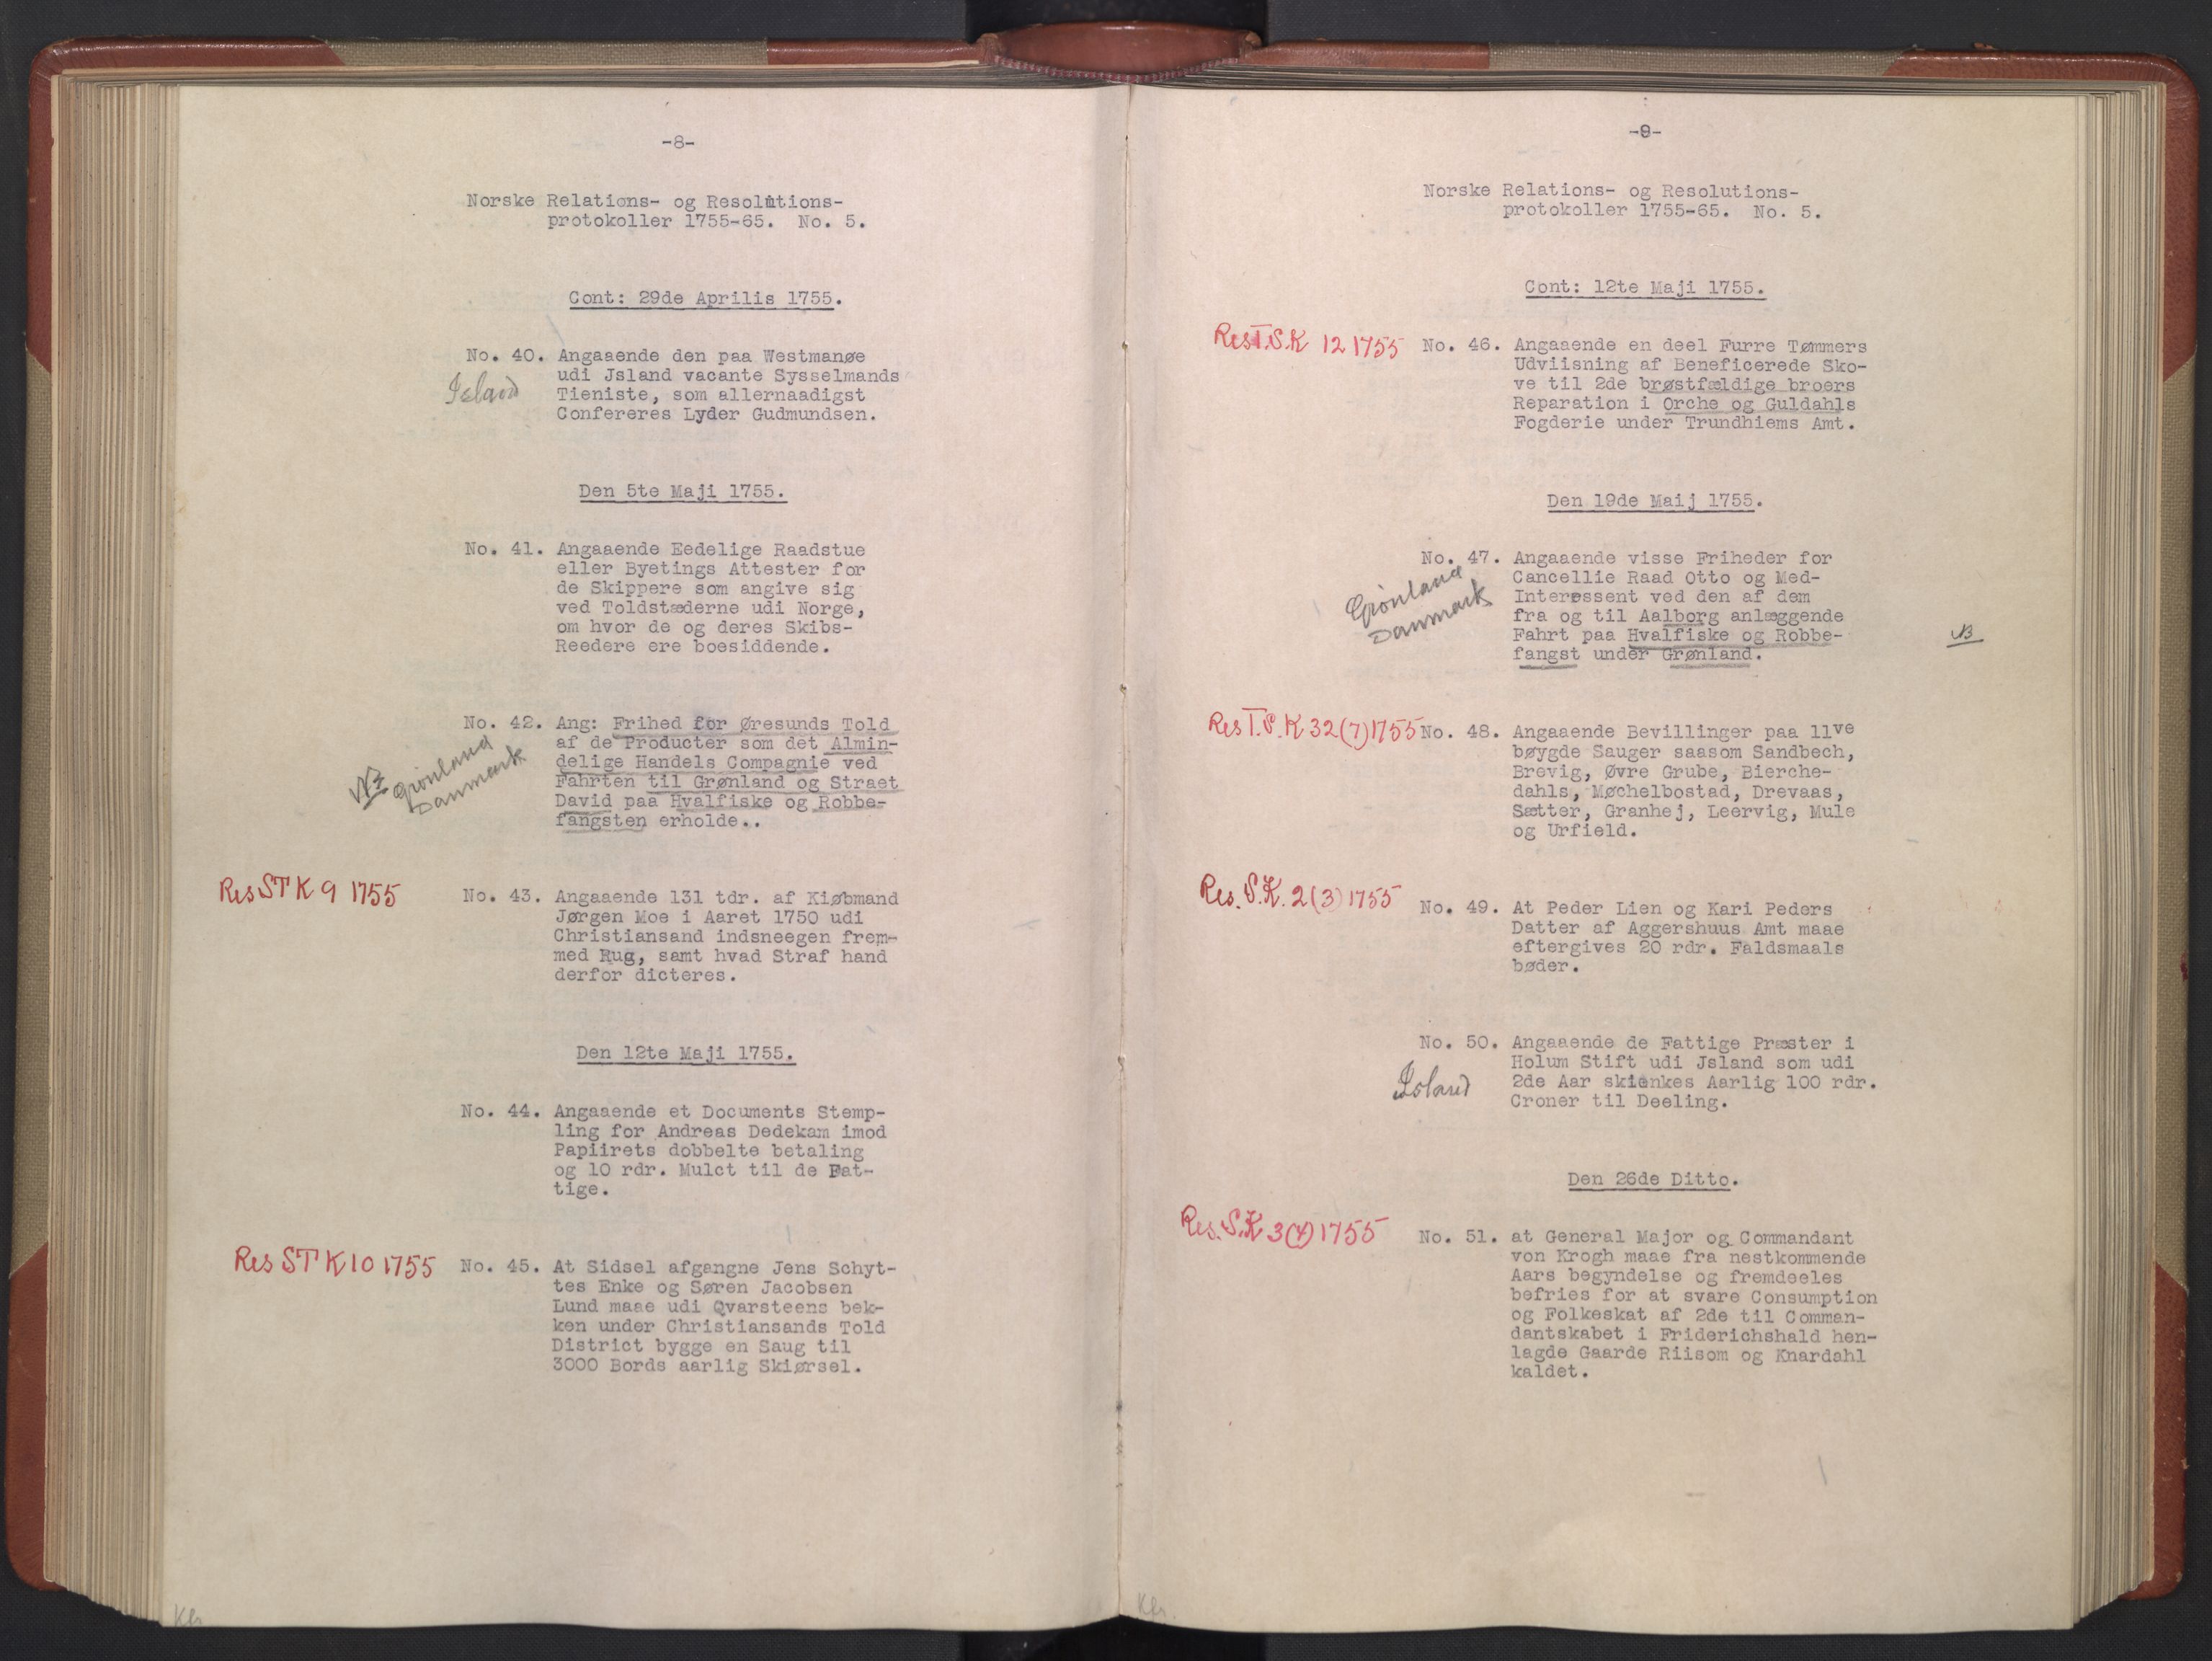 -8-
Norske Relations- og Resolutions-
protokoller 1755-65. No. 5.
Cont: 29de Aprilis 1755.
No. 40. Angaaende den paa Westmanøe
udi Jsland vacante Sysselmands
Island
Tieniste, som allernaadigst
Confereres Lyder Gudmundsen.
Den 5te Maji 1755.
No. 41. Angaaende Eedelige Raadstue
eller Byetings Attester for
de Skippere som angive sig
ved Toldstæderne udi Norge,
om hvor de og deres Skibs-
Reedere ere boesiddende.
No. 42. Ang: Frihed for Øresunds Told
af de Producter som det Almin-
delige Handels Compagnie ved
NB Grönland
Danmark
Fahrten til Grønland og Straet
David paa Hvalfiske og Robbe-
fangsten erholde..
Res STK 9 1755
No. 43. Angaaende 131 tdr. af Kiøbmand
Jørgen Moe i Aaret 1750 udi
Christiansand indsneegen frem-
med Rug, samt hvad Straf hand
derfor dicteres.
Den 12te Maji 1755.
No. 44. Angaaende et Documents Stemp-
ling for Andreas Dedekam imod
Papiirets dobbelte betaling
og 10 rdr. Mulct til de Fat-
tige.
Res STK 10 1755
No. 45. At Sidsel afgangne Jens Schyt-
tes Enke og Søren Jacobsen
Lund maae udi Qvarsteens bek-
ken under Christiansands Told
District bygge en Saug til
3000 Bords aarlig Skiørsel.
Kls
-9-
Norske Relations- og Resolutions-
protokoller 1755-65. No. 5.
Cont: 12te Maji 1755.
Res T.S.K 12 1755
No. 46. Angaaende en deel Furre Tømmers
Udviisning af Beneficerede Sko-
ve til 2de brøstfældige broers
Reparation i Orche og Guldahls
Fogderie under Trundhiems Amt.
Den 19de Maij 1755.
No. 47. Angaaende visse Friheder for
Cancellie Raad Otto og Med-
Interessent ved den af dem
Grönland
Danmark
fra og til Aalborg anlæggende
Fahrt paa Hvalfiske og Robbe-
NB
fangst under Grønland.
Res T.S.K 32(7)1755
No. 48. Angaaende Bevillinger paa 11ve
bøygde Sauger saasom Sandbech,
Brevig, Øvre Grube, Bierche-
dahls, Møchelbostad, Drevaas,
Sætter, Granhej, Leervig, Mule
og Urfield.
Res. S.K. 2(3)1755
No. 49. At Peder Lien og Kari Peders
Datter af Aggershuus Amt maae
eftergives 20 rdr. Faldsmaals
bøder.
No. 50. Angaaende de Fattige Præster i
Holum Stift udi Jsland som udi
Island
2de Aar skienkes Aarlig 100 rdr.
Croner til Deeling.
Den 26de Ditto.
Res. S.K 3(4)1755
No. 51. at General Major og Commandant
von Krogh maae fra nestkommende
Aars begyndelse og fremdeeles
befries for at svare Consumption
og Folkeskat af 2de til Comman-
dantskabet i Friderichshald hen-
lagde Gaarde Riisom og Knardahl
kaldet.
Kls.